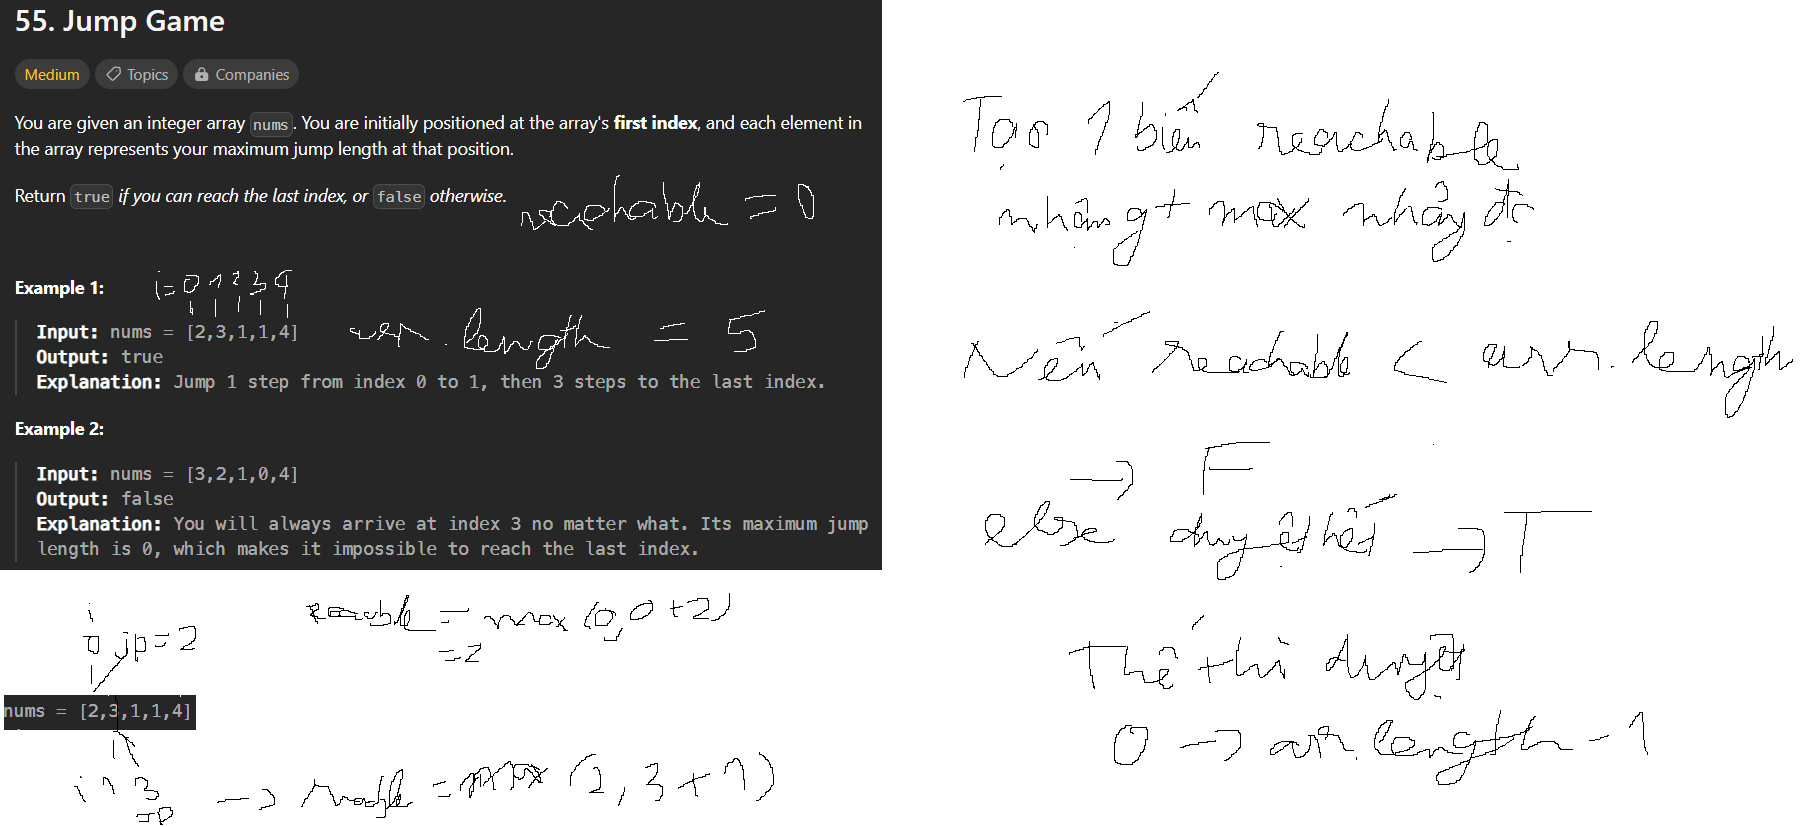 55. Jump Game
Medium Topics Companies
You are given an integer array nums. You are initially positioned at the array's first index, and each element in
the array represents your maximum jump length at that position.
Return true if you can reach the last index, or false otherwise.
reachable = 0
Example 1:
i = 0 1 2 3 4
Input: nums = [2,3,1,1,4]
arr.length = 5
Output: true
Explanation: Jump 1 step from index 0 to 1, then 3 steps to the last index.
Example 2:
Input: nums = [3,2,1,0,4]
Output: false
Explanation: You will always arrive at index 3 no matter what. Its maximum jump
length is 0, which makes it impossible to reach the last index.
i
0 jp=2
= max (0,0+2)
=2
nums = [2,3,1,1,4]
i 1 3
=max (2, 3+1)
Tạo 1 biến reachable
nhận gt max nhảy đc
Nếu reachable < arr.length
→ F
else duyệt hết → T
Thế thì duyệt
0 → arr.length - 1